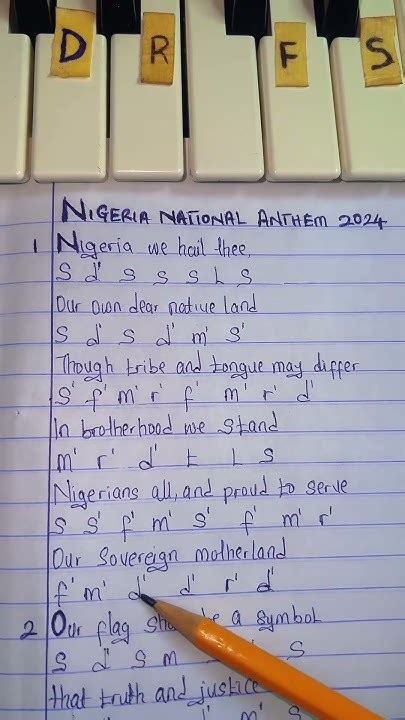 D R F S
NIGERIA NATIONAL ANTHEM 2024
1 Nigeria we hail thee,
S d' s s s L s
Our own dear native land
S d' s d' m' s'
Though tribe and tongue may differ
s' f' m' r' f' m' r' d'
In brotherhood we stand
m' r' d' t L s
Nigerians all, and proud to serve
s s' f' m' s' f' m' r'
Our Sovereign motherland
f' m' d' d' r' d'
2 Our flag a symbol
s d' s m s
that truth and justice
d' m' s